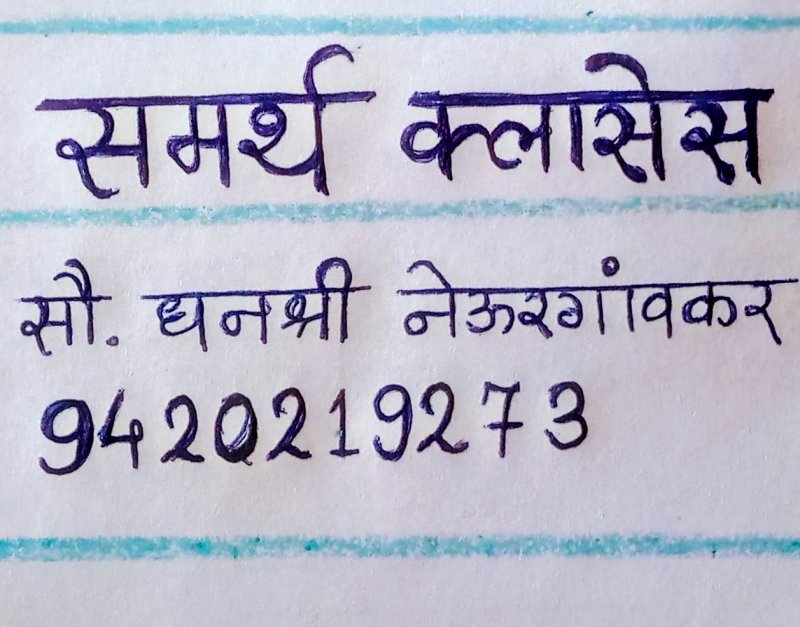 समर्थ क्लासेस
सौ. धनश्री नेऊरगांवकर
9420219273